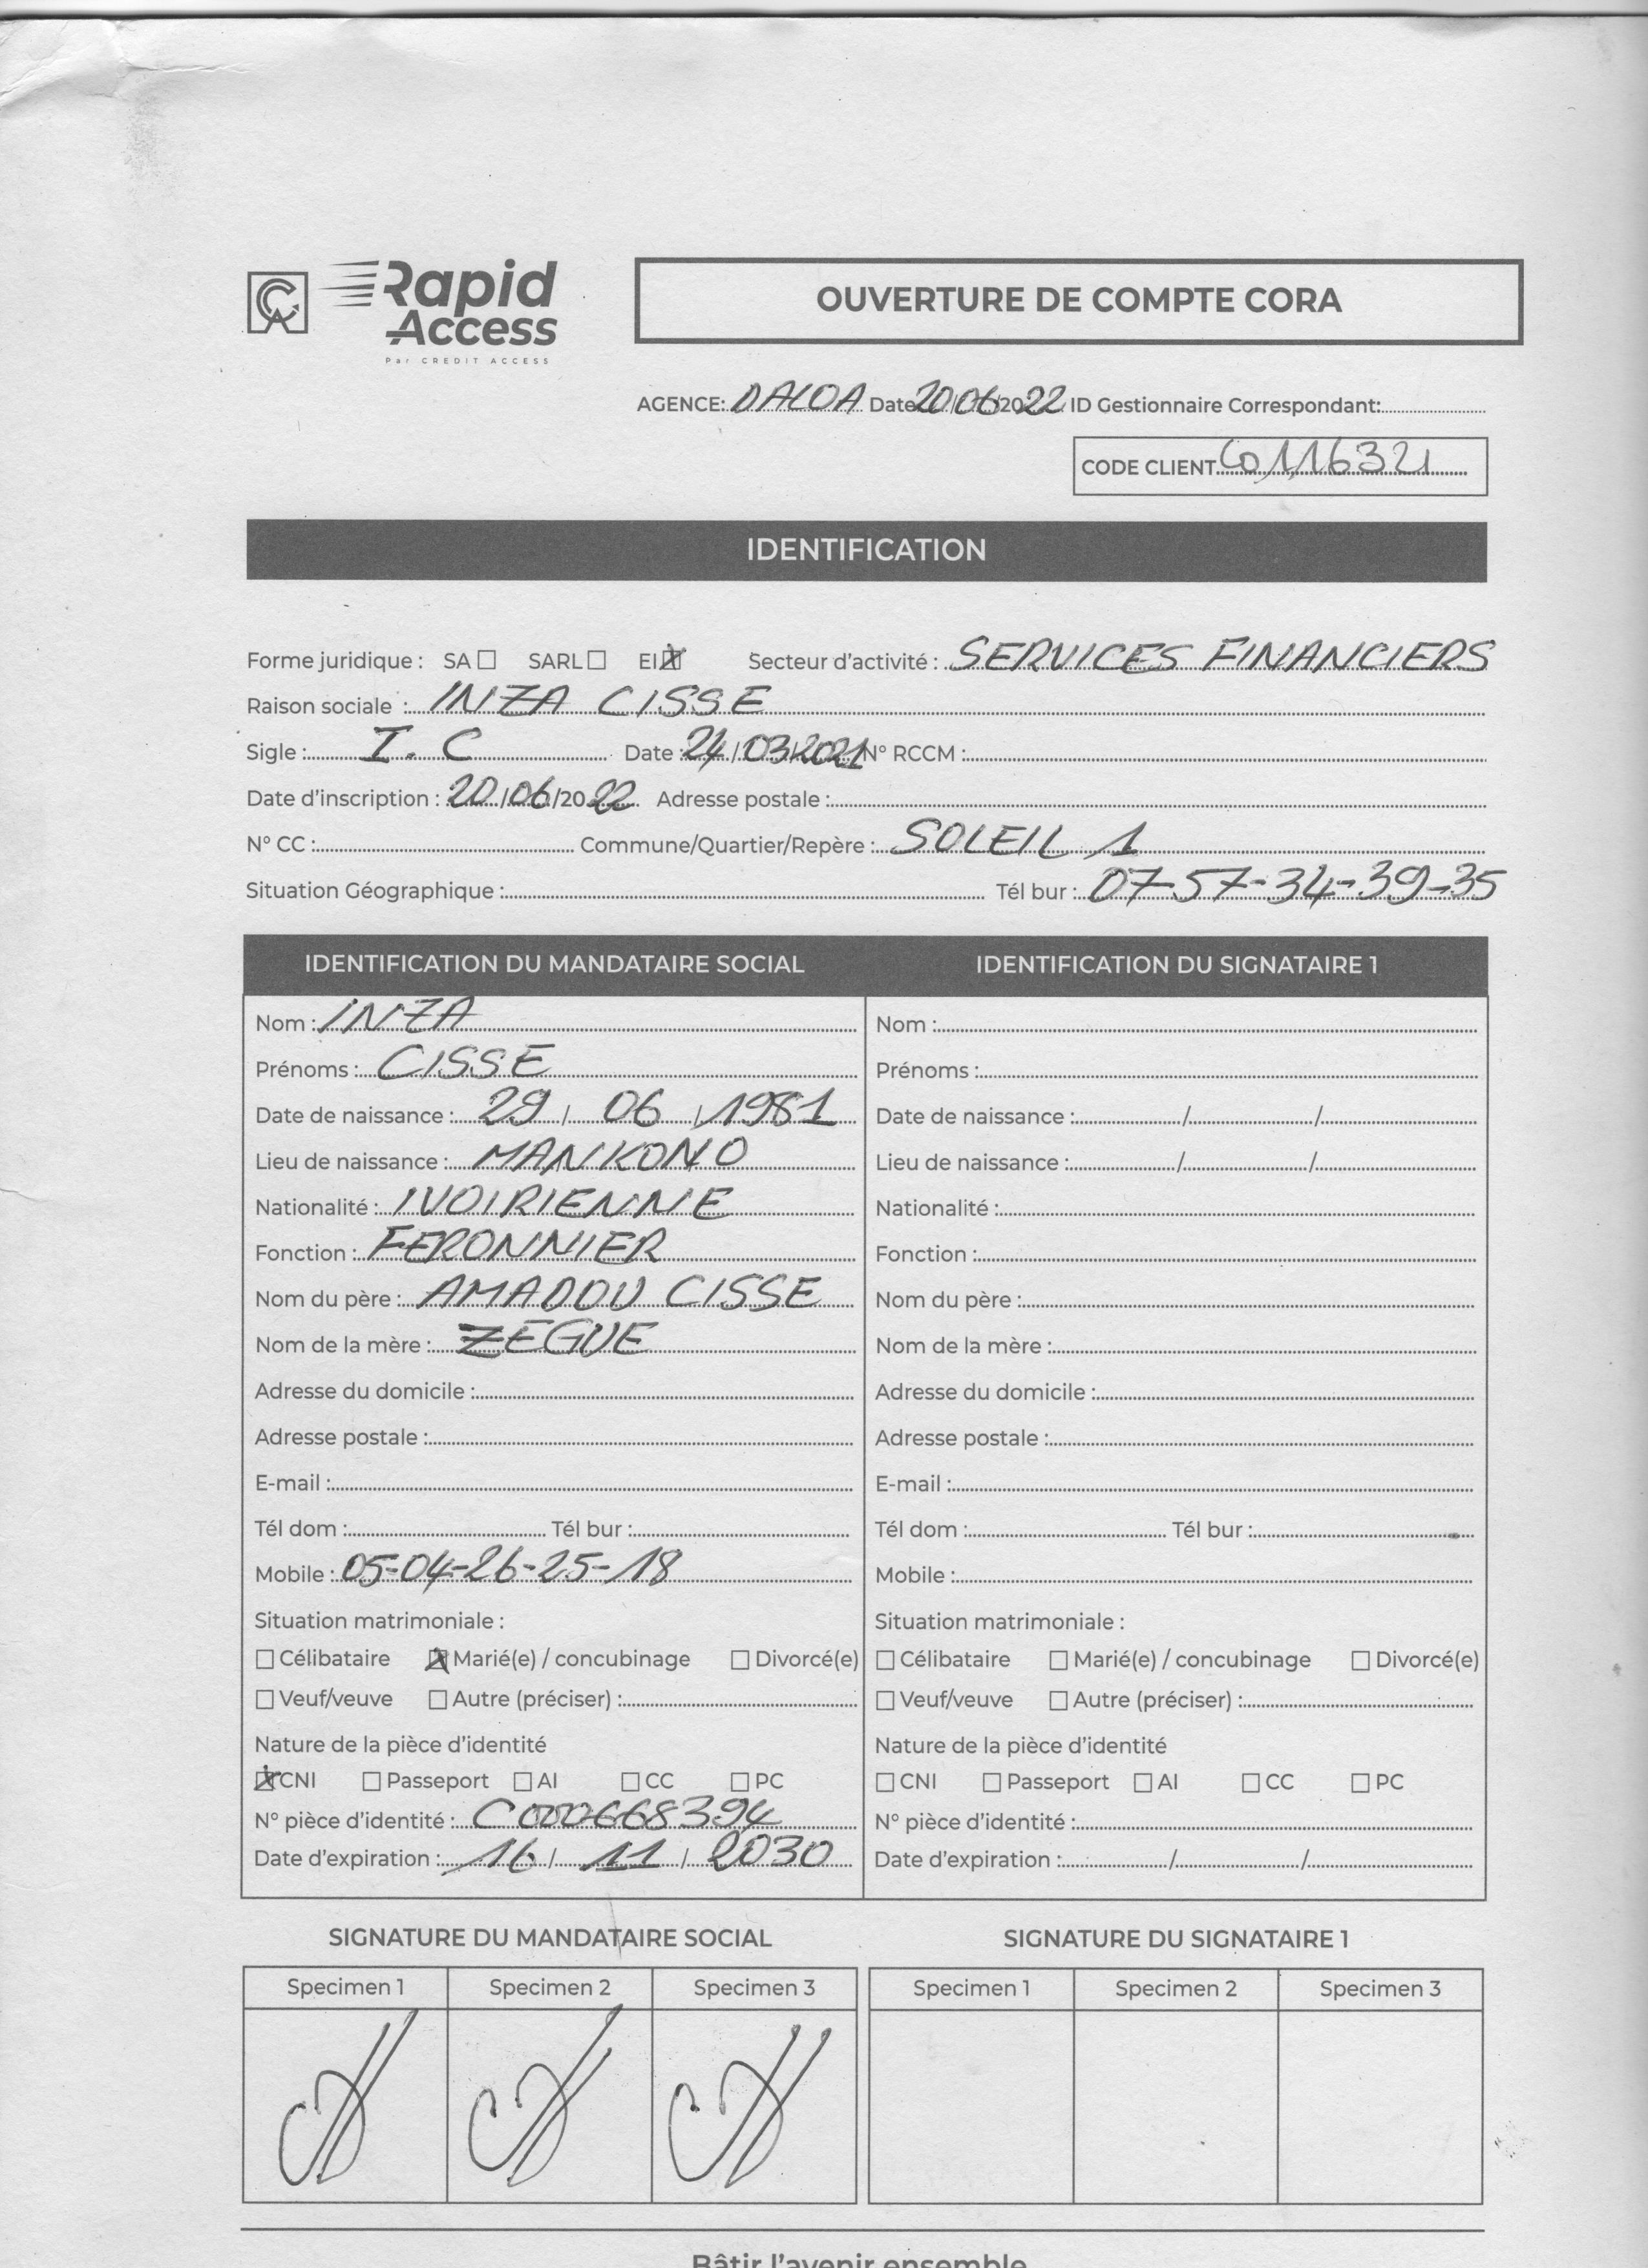 Rapid
Access
Par CREDIT ACCESS
OUVERTURE DE COMPTE CORA
AGENCE: DALOA Date 20/06/2022 ID Gestionnaire Correspondant:
CODE CLIENT C0116321
IDENTIFICATION
Forme juridique : SA SARL EI Secteur d'activité : SERVICES FINANCIERS
Raison sociale : INZA CISSE
Sigle : I. C Date : 24/03/2021 N° RCCM :
Date d'inscription : 20/06/2022 Adresse postale :
N° CC : Commune/Quartier/Repère : SOLEIL 1
Situation Géographique : Tél bur : 07-57-34-39-35
IDENTIFICATION DU MANDATAIRE SOCIAL
Nom : INZA
Prénoms : CISSE
Date de naissance : 29 / 06 / 1981
Lieu de naissance : MANKONO
Nationalité : IVOIRIENNE
Fonction : FERONNIER
Nom du père : AMADOU CISSE
Nom de la mère : ZEGUE
Adresse du domicile :
Adresse postale :
E-mail :
Tél dom : Tél bur :
Mobile : 05-04-26-25-18
Situation matrimoniale :
Célibataire Marié(e) / concubinage Divorcé(e)
Veuf/veuve Autre (préciser) :
Nature de la pièce d'identité
CNI Passeport AI CC PC
N° pièce d'identité : C000668394
Date d'expiration : 16 / 11 / 2030
IDENTIFICATION DU SIGNATAIRE 1
Nom :
Prénoms :
Date de naissance : / /
Lieu de naissance : / /
Nationalité :
Fonction :
Nom du père :
Nom de la mère :
Adresse du domicile :
Adresse postale :
E-mail :
Tél dom : Tél bur :
Mobile :
Situation matrimoniale :
Célibataire Marié(e) / concubinage Divorcé(e)
Veuf/veuve Autre (préciser) :
Nature de la pièce d'identité
CNI Passeport AI CC PC
N° pièce d'identité :
Date d'expiration : / /
SIGNATURE DU MANDATAIRE SOCIAL
Specimen 1 Specimen 2 Specimen 3
SIGNATURE DU SIGNATAIRE 1
Specimen 1 Specimen 2 Specimen 3
Bâtir l'avenir ensemble